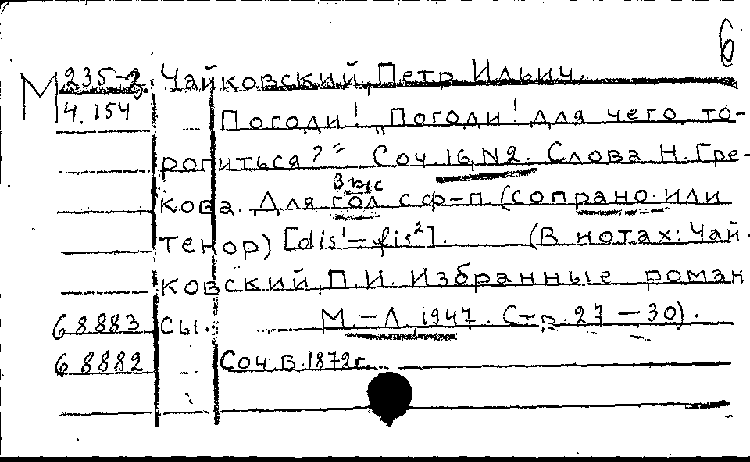 6
М 235-2 Чайковский, Петр Ильич.
4.154 Погоди! „Погоди! для чего то-
ропиться?" Соч. 16, №2. Слова Н. Гре-
Выс
кова. Для гол с ф-п (сопрано или
тенор) [dis¹-fis²]. (В нотах: Чай-
ковский П.И. Избранные роман
68883 сы. М.-Л. 1947. Стр. 27-30).
68882 Соч. в. 1872 г.